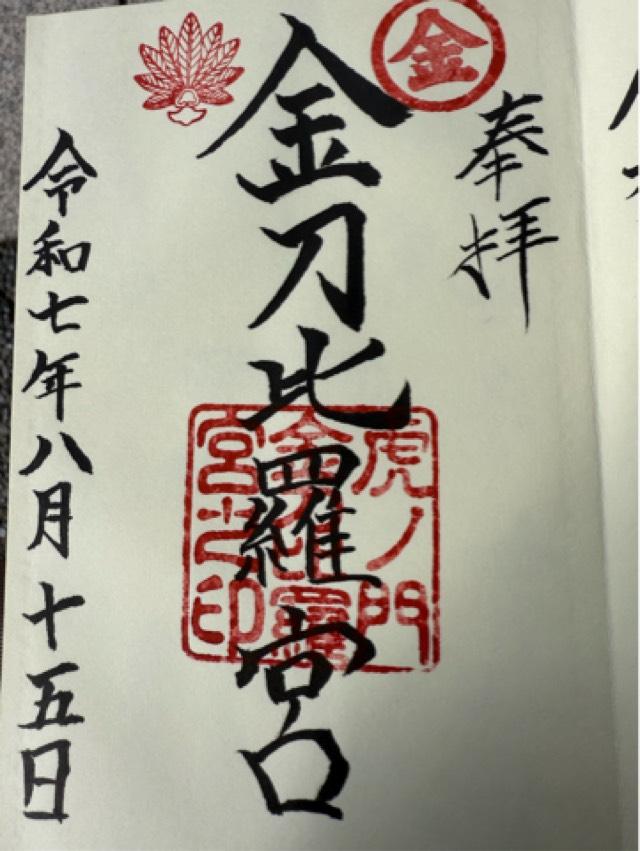 金
奉拝
金刀比羅宮
虎ノ門
金刀比羅
宮之印
令和七年八月十五日